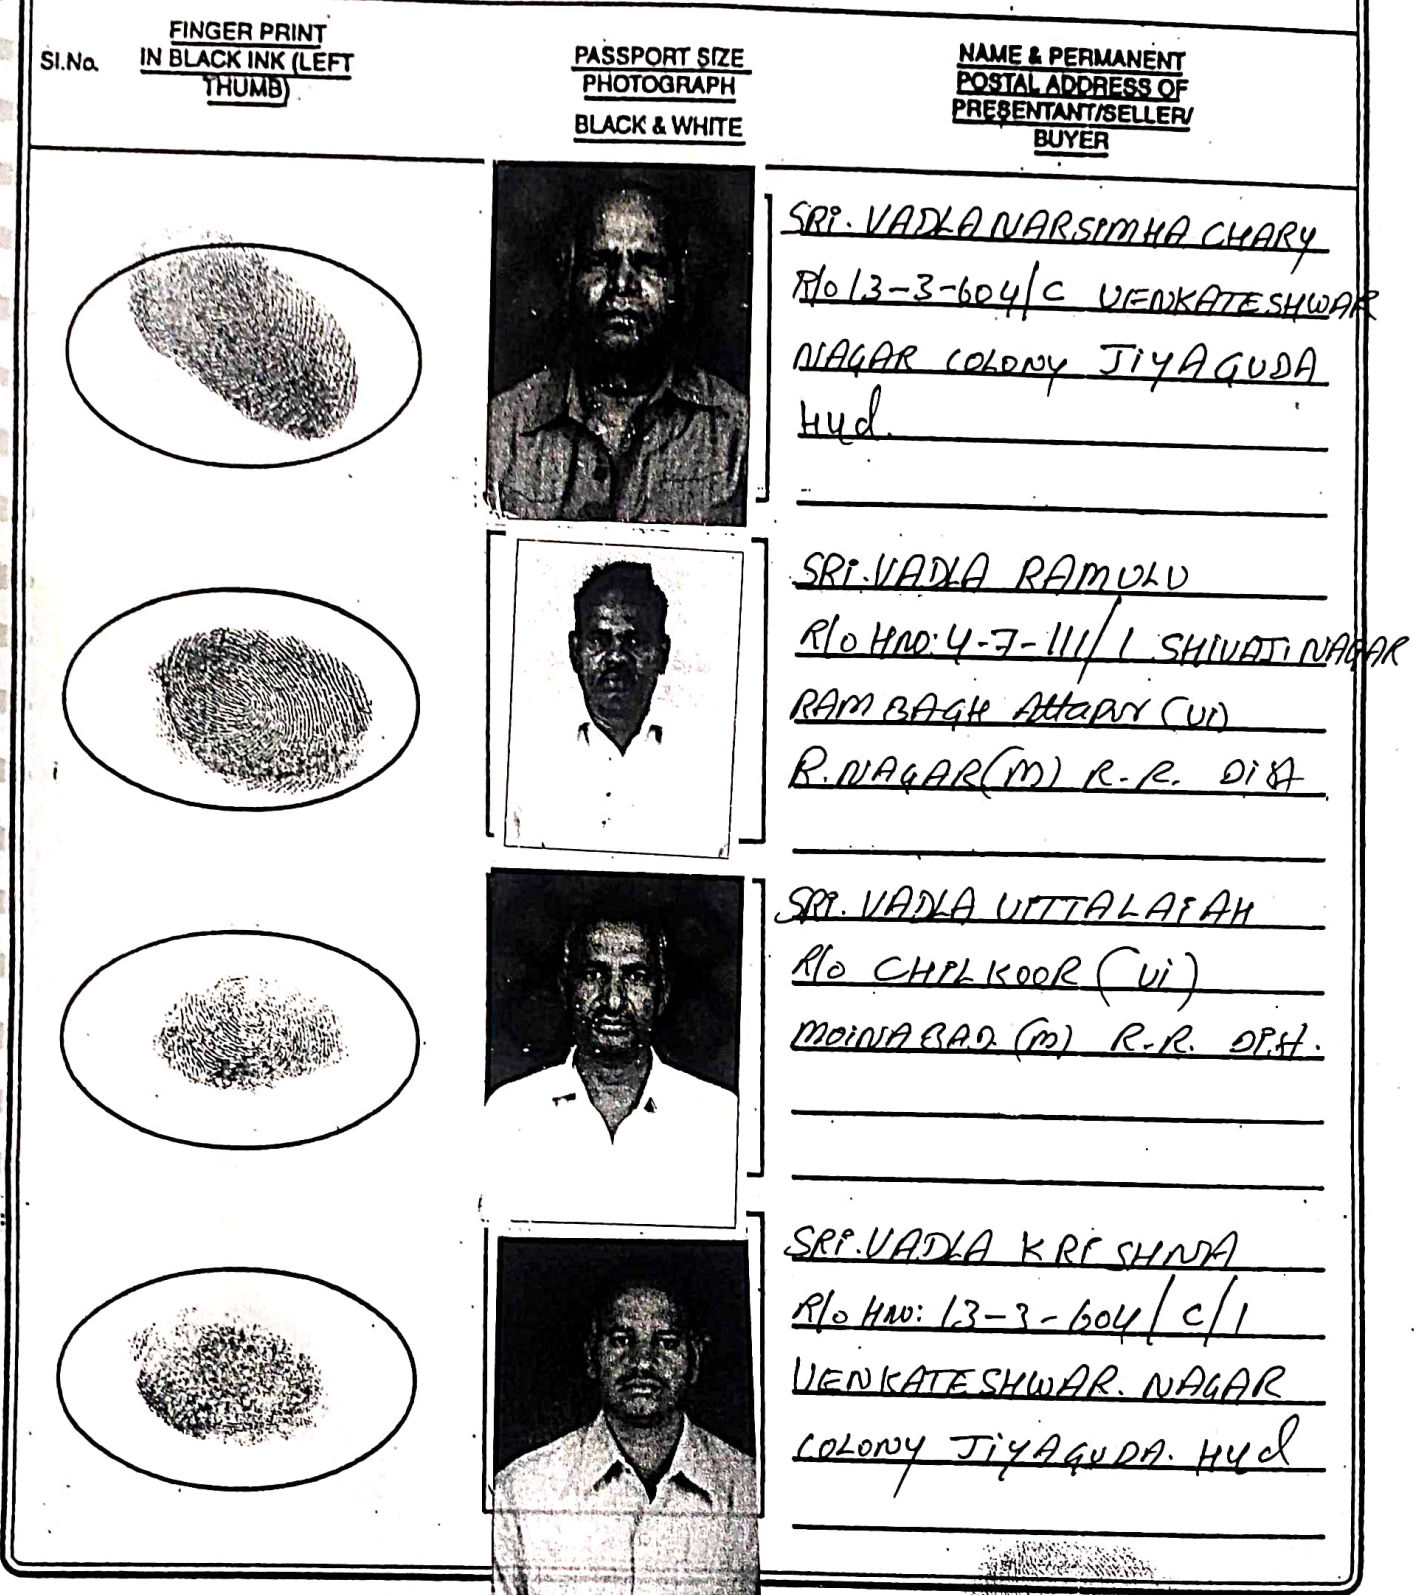 Sl.No.
FINGER PRINT
IN BLACK INK (LEFT
THUMB)
PASSPORT SIZE
PHOTOGRAPH
BLACK & WHITE
NAME & PERMANENT
POSTAL ADDRESS OF
PRESENTANT/SELLER/
BUYER
SRI. VADLA NARSIMHA CHARY
R/o 13-3-604/C VENKATESHWAR
NAGAR COLONY JIYAGUDA
Hyd.
SRI. VADLA RAMULU
R/o HNO: 4-7-111/1 SHIVAJI NAGAR
RAM BAGH Attapur (Vi)
R.NAGAR (M) R.R. Dist
SRI. VADLA VITTALAIAH
R/o CHILKOOR (Vi)
MOINABAD. (M) R.R. Dist.
SRI. VADLA KRISHNA
R/o HNO: 13-3-604/C/1
VENKATESHWAR. NAGAR
COLONY JIYAGUDA. Hyd